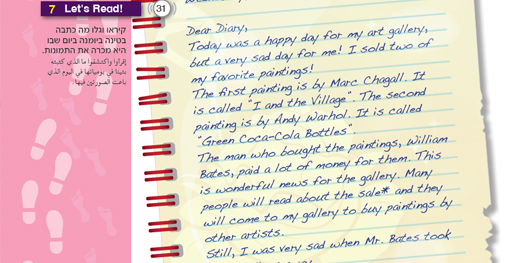 7 Let's Read!
31
קיראו וגלו מה כתבה
בטינה ביומנה ביום שבו
היא מכרה את התמונות.
إقرأوا واكتشفوا ما الذي كتبته
بتينا في يومياتها في اليوم الذي
باعت الصورتين فيها
Dear Diary,
Today was a happy day for my art gallery,
but a very sad day for me! I sold two of
my favorite paintings!
The first painting is by Marc Chagall. It
is called "I and the Village". The second
painting is by Andy Warhol. It is called
"Green Coca-Cola Bottles".
The man who bought the paintings, William
Bates, paid a lot of money for them. This
is wonderful news for the gallery. Many
people will read about the sale* and they
will come to my gallery to buy paintings by
other artists.
Still, I was very sad when Mr. Bates took